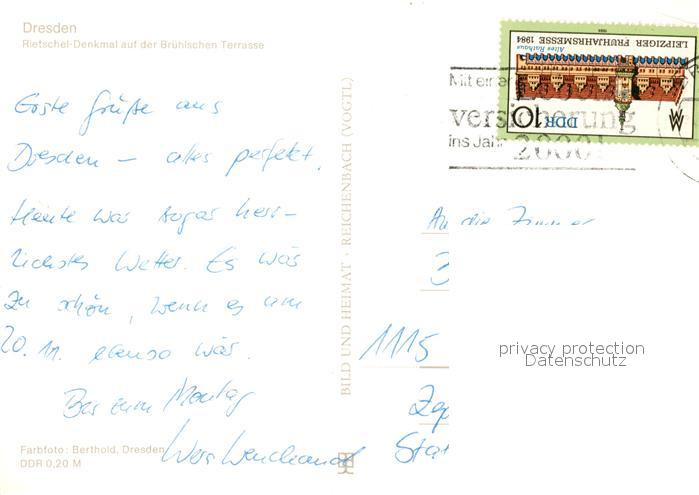 Dresden
Rietschel-Denkmal auf der Brühlschen Terrasse
Erste Grüße aus
Dresden – alles perfekt.
Heute war sogar herr-
lichstes Wetter. Es wäre
zu schön, wenn es am
20. 11. ebenso wär.
Bis zum Montag
Farbfoto: Berthold, Dresden
DDR 0,20 M
BILD UND HEIMAT · REICHENBACH (VOGTL)
LEIPZIGER FRÜHJAHRSMESSE 1984
Altes Rathaus
DDR
10
Mit einer
versicherung
ins Jahr 2000!
An die Zimmer
1115
privacy protection
Datenschutz